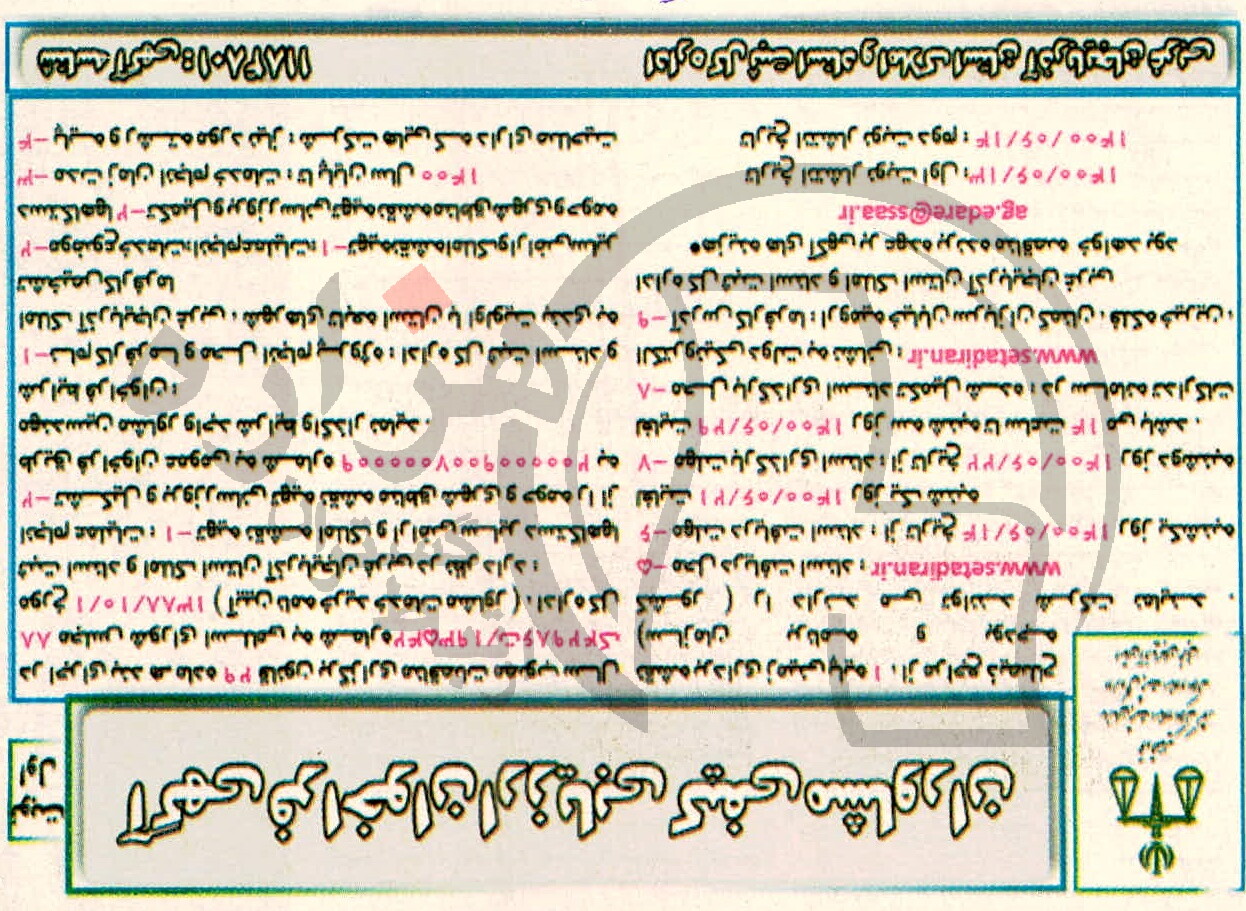 نوبت
اول
آگهی فراخوان ارزیابی کیفی مشاوران
قوه قضائیه
سازمان ثبت اسناد و املاک کشور
اداره کل ثبت اسناد و املاک
استان آذربایجان غربی
در اجرای بند هـ ماده ۲۹ قانون برگزاری مناقصات مصوب سال
۸۸ مجلس شورای اسلامی به شماره ۱۹۳۵۴۲/ت۴۲۹۸۶ک
مورخ ۱۳۸۸/۱۰/۱ (آیین نامه خرید خدمات مشاور) ، اداره کل
ثبت اسناد و املاک استان آذربایجان غربی در نظر دارد :
انجام عملیات : ۱- تهیه نقشه املاک و اراضی سایر دستگاهها
۲- تشکیل و بروزرسانی تهیه نقشه مناطق شهری و حومه را از
طریق فراخوان عمومی به شماره ۲۰۰۰۰۰۹۰۰۷۰۰۰۰۰۹ به
مهندسین مشاور واجد شرایط واگذار نماید .
شرایط فراخوان :
۱- نام کارفرما و محل انجام پروژه : اداره کل ثبت اسناد و
املاک آذربایجان غربی ، شهرهای تابعه استان با اولویت بندی به
تشخیص کارفرما
۲- موضوع خدمات: انجام عملیات: ۱- تهیه نقشه املاک و اراضی سایر
دستگاهها ۲- تکمیل و بروزرسانی تهیه نقشه مناطق شهری و حومه
۳- مدت زمان انجام خدمات : تا پایان سال ۱۴۰۰
۴- پایه و رشته مورد نیاز : شرکت هایی که دارای صلاحیت
نقشه برداری زمینی پایه ۱ ، از مراجع ذیصلاح
(سازمان برنامه و بودجه
کشور ) را دارند می توانند شرکت نمایند .
۵- محل دریافت اسناد : www.setadiran.ir
۶- مهلت دریافت اسناد : از تاریخ ۱۴۰۰/۰۶/۱۴ روز یکشنبه
لغایت ۱۴۰۰/۰۶/۲۱ روز یک شنبه
۷- مهلت بارگذاری اسناد : از تاریخ ۱۴۰۰/۰۶/۲۲ روز دوشنبه
لغایت ۱۴۰۰/۰۶/۲۹ روز سه شنبه تا ساعت ۱۴ می باشد .
۸- محل بارگذاری اسناد تکمیل شده : در سامانه تدارکات
الکترونیکی دولت به نشانی : www.setadiran.ir
۹- آدرس کارفرما : ارومیه خیابان سربازان گمنان ، فلکه خیرین ،
اداره کل ثبت اسناد و املاک استان آذربایجان غربی
•هزینه های آگهی بر عهده برنده مناقصه خواهد بود
ag.edare@ssaa.ir
تاریخ انتشار نوبت اول :۱۴۰۰/۰۶/۱۳
تاریخ انتشار نوبت دوم : ۱۴۰۰/۰۶/۱۴
شناسه آگهی : ۱۱۸۴۸۰۱
اداره کل ثبت اسناد و املاک استان آذربایجان غربی